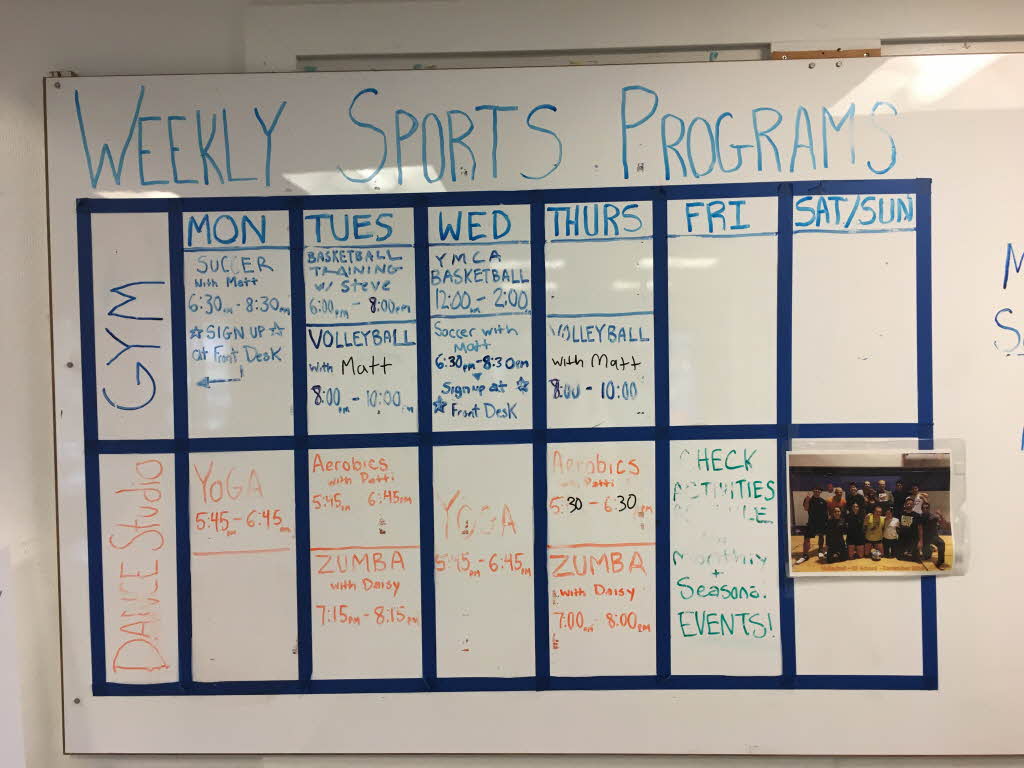 WEEKLY SPORTS PROGRAMS
MON TUES WED THURS FRI SAT/SUN
GYM
SOCCER
with Matt
6:30pm - 8:30pm
☆SIGN UP☆
at Front Desk
BASKETBALL
TRAINING
w/ Steve
6:00pm - 8:00pm
VOLLEYBALL
with Matt
8:00pm - 10:00pm
YMCA
BASKETBALL
12:00 - 2:00
Soccer with
Matt
6:30pm - 8:30pm
Sign up at ☆
☆ Front Desk
VOLLEYBALL
with Matt
8:00 - 10:00
DANCE Studio
YOGA
5:45pm - 6:45pm
Aerobics
with Patti
5:45pm 6:45pm
ZUMBA
with Daisy
7:15pm - 8:15pm
YOGA
5:45pm - 6:45pm
Aerobics
with Patti
5:30 - 6:30pm
ZUMBA
with Daisy
7:00pm - 8:00pm
CHECK
ACTIVITIES
Monthly
+
Seasona
EVENTS!